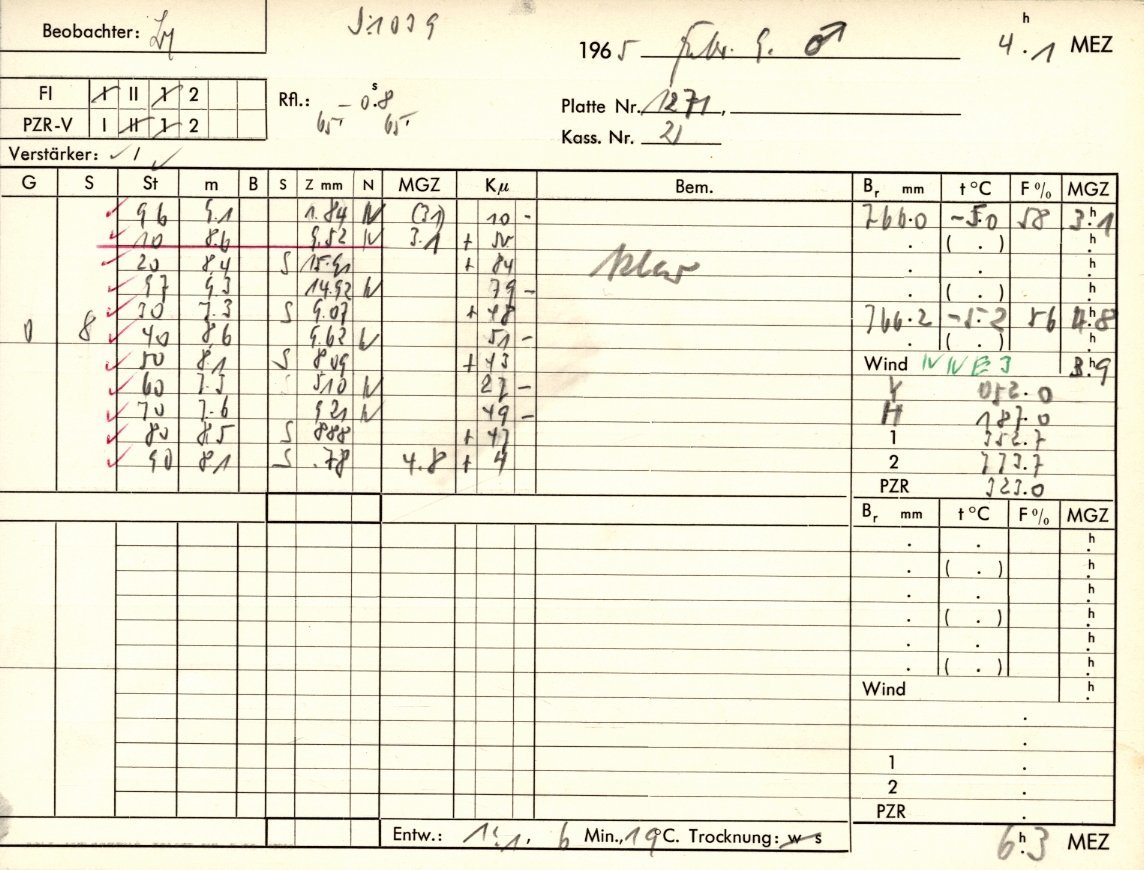 Beobachter:
1965 Febr. 9. ♂ 4.ʰ1 MEZ
FI I II 1 2
PZR-V I II 1 2
Rfl.: – 0.ˢ8
Platte Nr. 1271,
Kass. Nr. 21
Verstärker: 1
G S St m B S Z mm N MGZ Kμ Bem.
96 9.1 1.84 N (31) 10 -
10 8.6 9.52 N 3.1 + 50
20 8.4 S 15.91 + 84
97 9.3 14.92 N 79 -
30 7.3 S 9.07 + 48
0 8 40 8.6 9.62 N 51 -
50 8.1 S 8 09 + 43
60 7.3 510 N 27 -
70 7.6 921 N 49 -
80 85 S 888 + 47
90 81 S .78 4.8 + 4
klar
Bᵣ mm t °C F % MGZ
766.0 -5.0 58 3.ʰ1
( . ) .ʰ
. . .ʰ
. ( . ) .ʰ
766.2 -5.2 56 4.ʰ8
( . ) .ʰ
Wind NNE 3 3.ʰ9
Y 052.0
H 187.0
1 352.7
2 173.7
PZR 323.0
Bᵣ mm t °C F % MGZ
. . .ʰ
. ( . ) .ʰ
. . .ʰ
. ( . ) .ʰ
. . .ʰ
. ( . ) .ʰ
Wind .ʰ
.
.
1 .
2 .
PZR .
Entw.: 1:1, 6 Min., 19°C. Trocknung: w s
6.ʰ3 MEZ